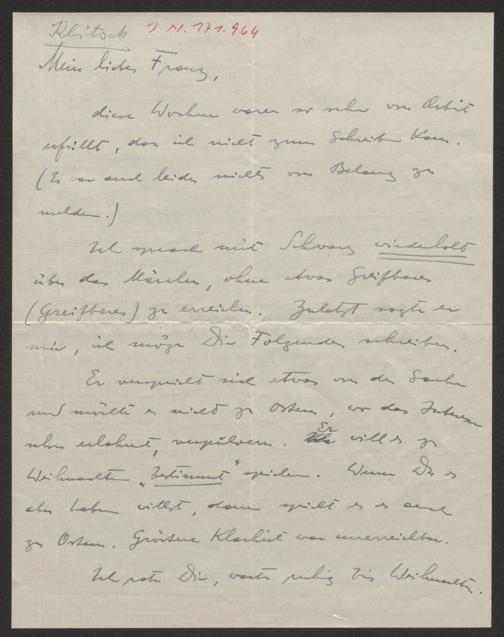 Klitsch J.N. 171.964
Mein lieber Franz,
diese Wochen waren so sehr von Arbeit
erfüllt, dass ich nicht zum Schreiben kam.
(Es war auch leider nichts von Belang zu
melden.)
Ich sprach mit Schwarz wiederholt
über das Märchen, ohne etwas Greifbares
(Greifbares) zu erreichen. Zuletzt sagte er
mir, ich möge Dir Folgendes schreiben.
Er verspricht sich etwas von der Sache
und möchte es nicht zu Ostern, wo das Interesse
schon erlahmt, verpulvern. Er will es zu
Weihnachten "bestimmt" spielen. Wenn Du es
aber haben willst, dann spielt er es auch
zu Ostern. Grössere Klarheit war unerreichbar.
Ich rate Dir, warte ruhig bis Weihnachten.